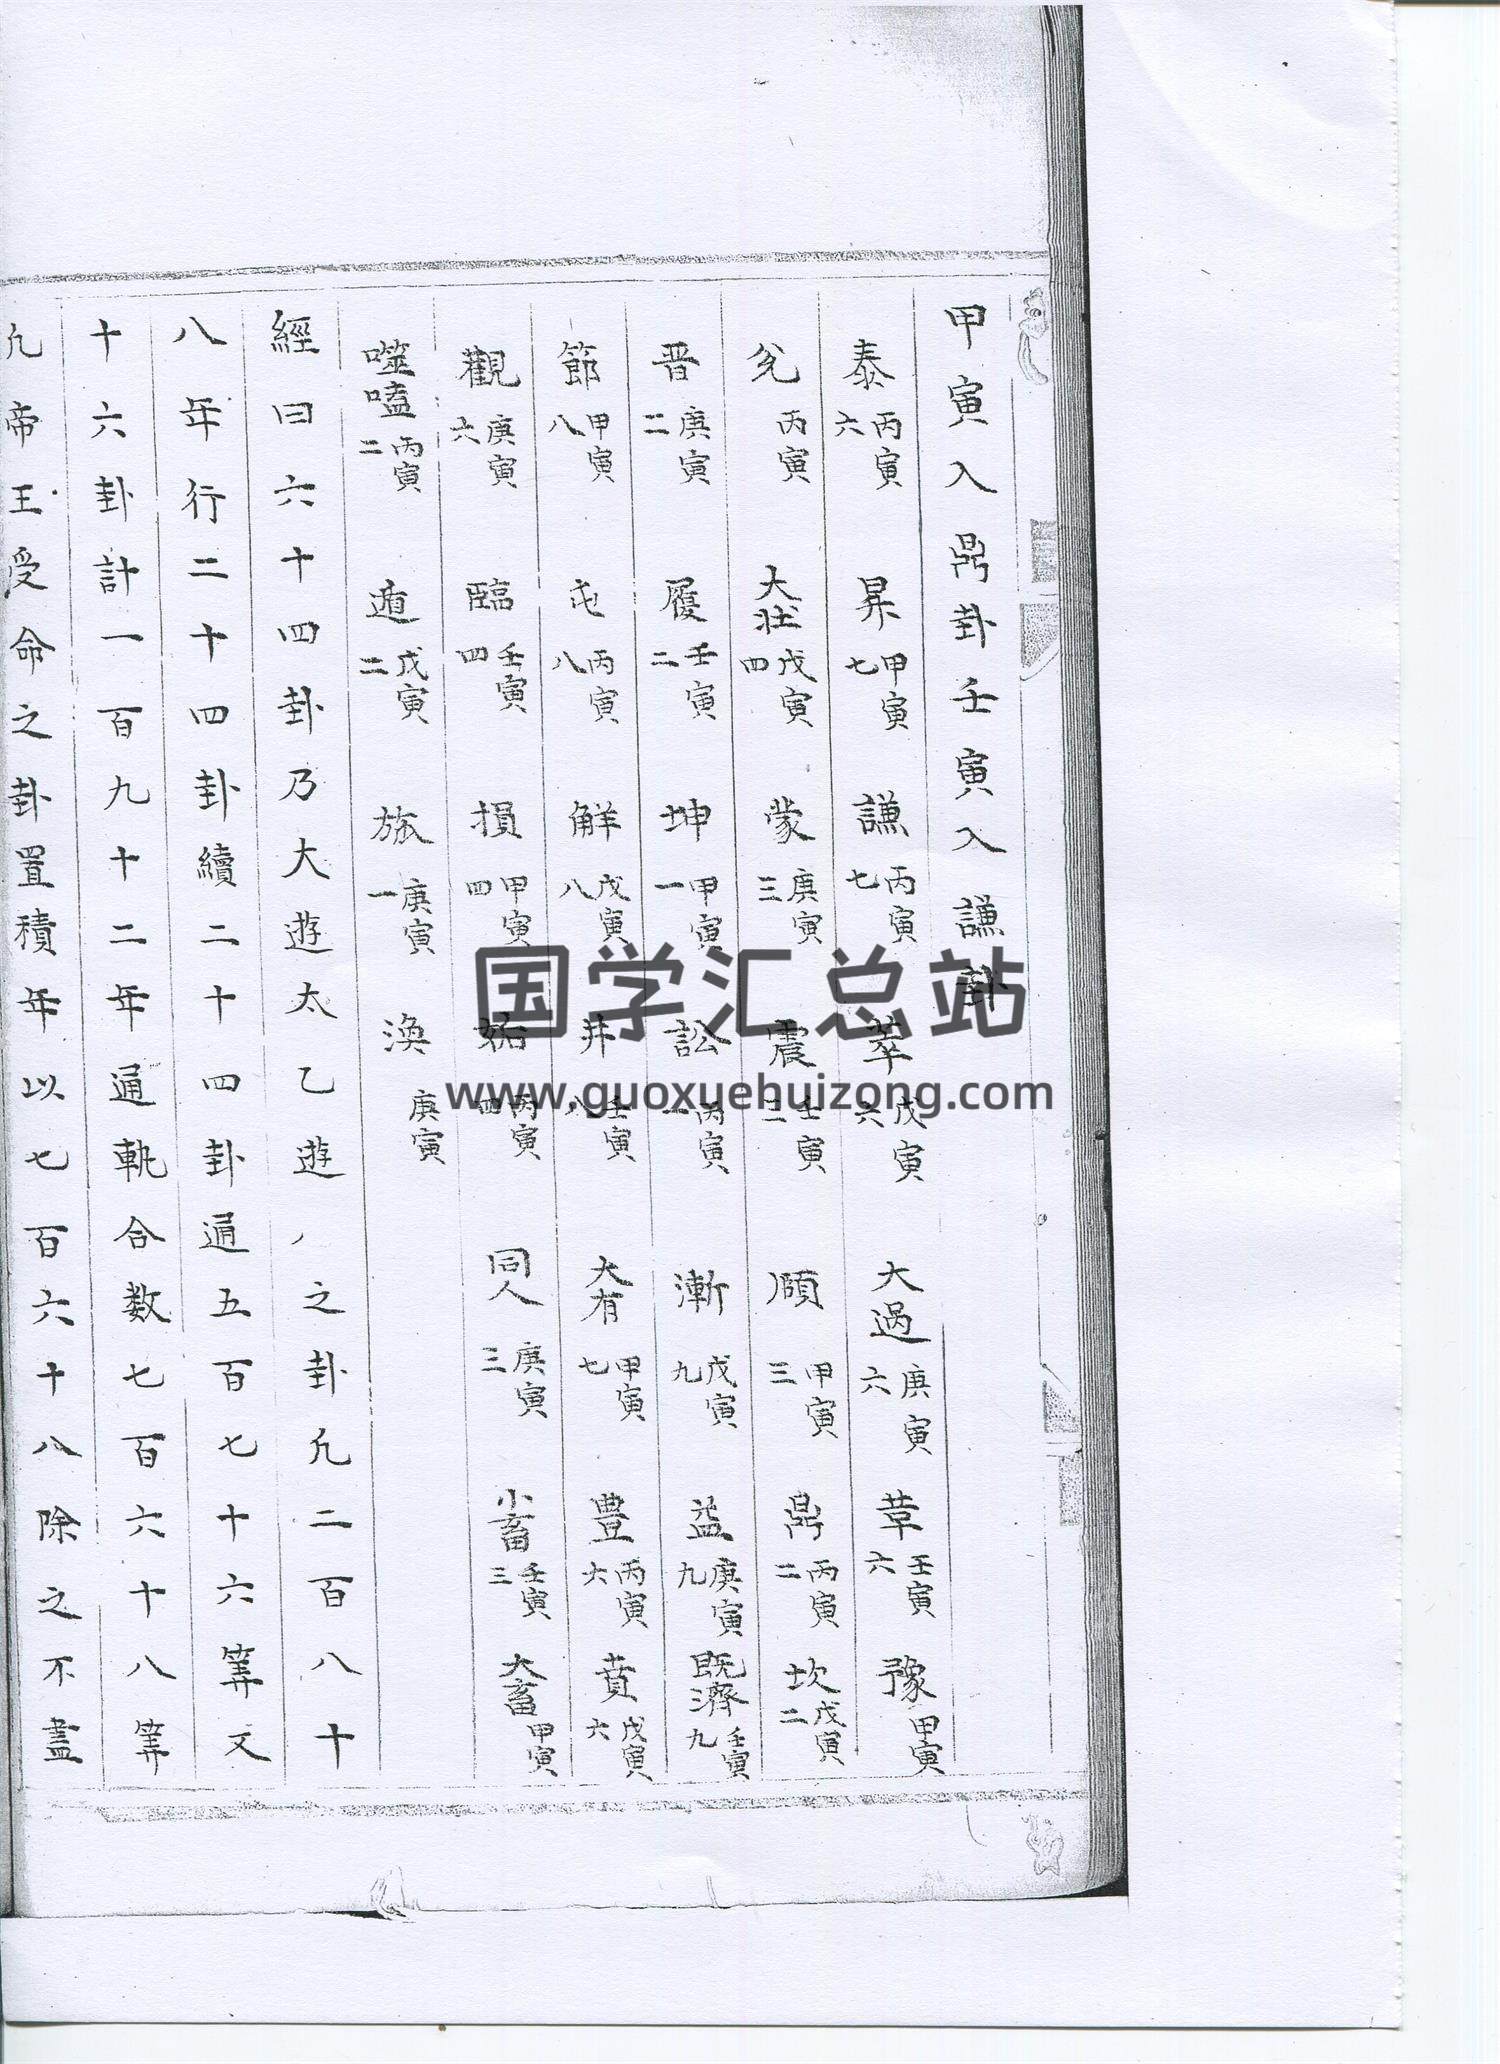 甲寅入鼎卦壬寅入謙卦
泰丙寅六 昇甲寅七 謙丙寅七 萃戊寅六 大過庚寅六 革壬寅六 豫甲寅
兌丙寅 大壯戊寅四 蒙庚寅三 震壬寅三 頤甲寅三 鼎丙寅二 坎戊寅二
晋庚寅二 履壬寅二 坤甲寅一 訟丙寅一 漸戊寅九 益庚寅九 既濟壬寅九
節甲寅八 屯丙寅八 解戊寅八 井壬寅八 大有甲寅七 豊丙寅六 賁戊寅六
觀庚寅六 臨壬寅四 損甲寅四 姤丙寅四 同人庚寅三 小畜壬寅三 大畜甲寅
噬嗑丙寅二 遁戊寅二 旅庚寅一 渙庚寅
經曰六十四卦乃大遊太乙遊八之卦凢二百八十
八年行二十四卦續二十四卦通五百七十六筭又
十六卦計一百九十二年通軌合数七百六十八筭
凢帝王受命之卦置積年以七百六十八除之不盡
国学汇总站
www.guoxuehuizong.com